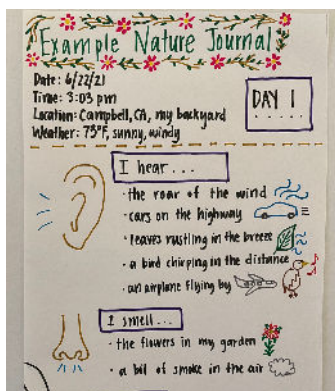 Example Nature Journal
Date: 6/22/21
Time: 3:03 pm
Location: Campbell, CA, my backyard
Weather: 75°F, sunny, windy
DAY 1
I hear...
· the roar of the wind
· cars on the highway
· leaves rustling in the breeze
· a bird chirping in the distance
· an airplane flying by
I smell...
· the flowers in my garden
· a bit of smoke in the air